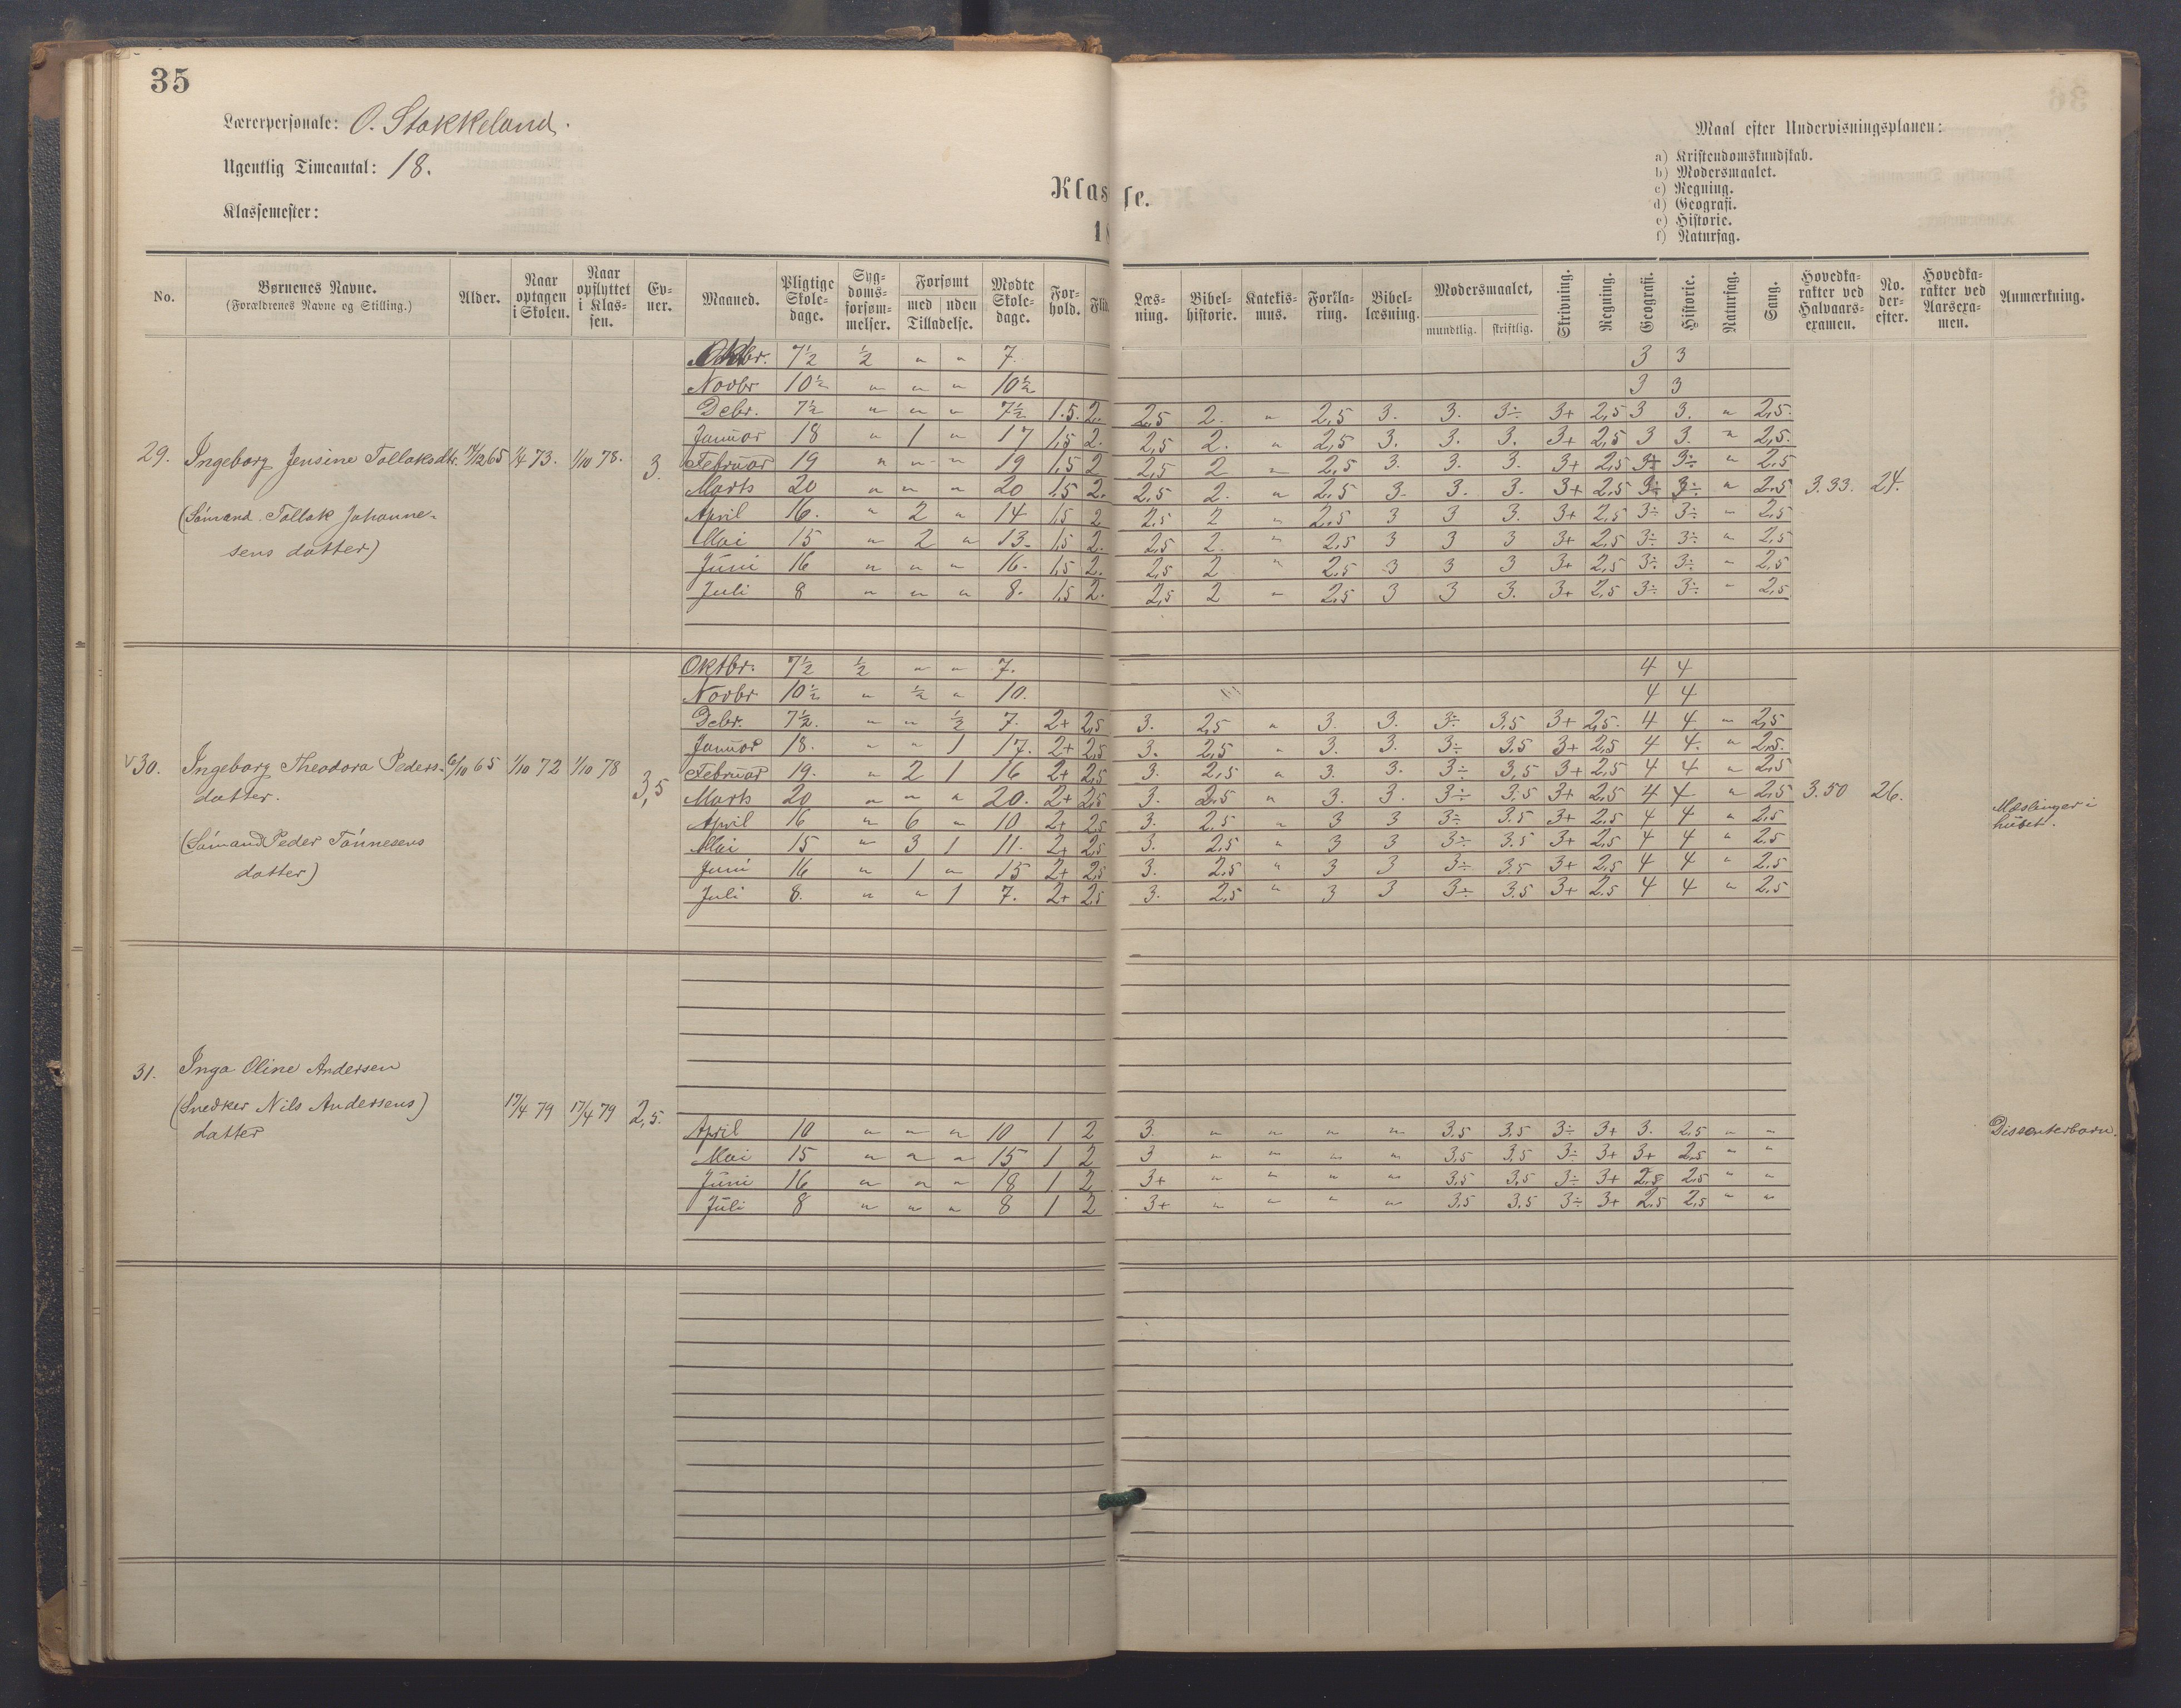 35
Lærerpersonale: O. Stokkeland.
Ugentlig Timeantal: 18.
Klassemester:
Klasse.
18
Maal efter Undervisningsplanen:
a) Kristendomskundskab.
b) Modersmaalet.
c) Regning.
d) Geografi.
e) Historie.
f) Naturfag.
No. Børnenes Navne. (Forældrenes Navne og Stilling.) Alder. Naar optagen i Skolen. Naar opflyttet i Klassen. Evner. Maaned. Pligtige Skoledage. Sygdomsforsømmelser. Forsømt med uden Tilladelse. Mødte Skoledage. Forhold. Flid. Læsning. Bibelhistorie. Katekismus. Forklaring. Bibellæsning. Modersmaalet, mundtlig. skriftlig. Skrivning. Regning. Geografi. Historie. Naturfag. Sang. Hovedkarakter ved Halvaarsexamen. No. derefter. Hovedkarakter ved Aarsexamen. Anmærkning.
29. Ingeborg Jensine Tollaksdtr. 14/12 65 1/4 73. 1/10 78. 3. 3.33. 24.
(Sömand Tollak Johannesens datter)
Oktbr. 7½ ½ " " 7. 3 3
Novbr 10½ " " " 10½ 3 3
Debr. 7½ " " " 7½ 1.5. 2. 2,5 2. " 2,5 3. 3. 3÷ 3+ 2,5 3 3. " 2,5.
Januar 18 " 1 " 17 1,5 2. 2,5 2. " 2,5 3. 3. 3. 3+ 2,5 3 3. " 2,5.
Februar 19 " " " 19 1,5 2 2,5 2 " 2,5 3. 3. 3. 3+ 2,5 3÷ 3÷ " 2,5
Marts 20 " " " 20 1,5 2. 2,5 2. " 2,5 3. 3. 3. 3+ 2,5 3÷ 3÷ " 2,5
April 16. " 2 " 14 1,5 2 2,5 2 " 2,5 3 3 3. 3+ 2,5 3÷ 3÷ " 2,5
Mai 15 " 2 " 13. 1,5 2. 2,5 2. " 2,5 3 3 3 3+ 2,5 3÷ 3÷ " 2,5
Juni 16 " " " 16. 1,5 2. 2,5 2 " 2,5 3 3 3 3+ 2,5 3÷ 3÷ " 2,5
Juli 8 " " " 8. 1,5 2. 2,5 2 " 2,5 3 3 3. 3+ 2,5 3÷ 3÷ " 2,5
v 30. Ingeborg Theodora Pedersdatter. 6/10 65 1/10 72 1/10 78 3,5 3.50 26. Mæslinger i huset.
(Sömand Peder Tönnesens datter)
Oktbr. 7½ ½ " " 7. 4 4
Novbr 10½ " ½ " 10. 4 4
Debr. 7½. " " ½ 7. 2+ 2,5 3. 2,5 " 3. 3. 3÷ 3,5 3+ 2,5. 4 4 " 2,5
Januar 18. " " 1 17. 2+ 2,5 3. 2,5 " 3. 3. 3÷ 3.5 3+ 2,5 4 4. " 2,5.
Februar 19. " 2 1 16 2+ 2,5 3. 2,5 " 3. 3. 3÷ 3,5 3+ 2,5 4 4 " 2,5
Marts 20 " " " 20. 2+ 2,5 3. 2,5 " 3. 3. 3÷ 3,5 3+ 2,5 4 4 " 2,5
April 16 " 6 " 10 2+ 2,5 3. 2,5 " 3 3 3÷ 3.5 3+ 2,5 4 4 " 2,5
Mai 15 " 3 1 11. 2+ 2,5 3. 2,5 " 3 3 3÷ 3.5 3+ 2,5 4 4 " 2,5
Juni 16 " 1 " 15 2+ 2,5 3. 2,5 " 3 3 3÷ 3.5 3+ 2,5 4 4 " 2,5
Juli 8. " " 1 7. 2+ 2,5 3. 2,5 " 3 3 3÷ 3.5 3+ 2,5 4 4 " 2,5
31. Inga Oline Andersen
(Snedker Nils Andersens) datter 17/4 79 17/4 79 2,5. Dissenterbarn.
April 10 " " " 10 1 2 3. " " " " 3,5 3,5 3÷ 3+ 3. 2,5 " "
Mai 15 " " " 15 1 2 3 " " " " 3,5 3,5 3÷ 3+ 3+ 2,5 " "
Juni 16 " " " 18 1 2 3+ " " " " 3,5 3,5 3÷ 3+ 2,5 2,5 " "
Juli 8 " " " 8 1 2 3+ " " " " 3,5 3,5 3÷ 3+ 2,5 2,5 " "